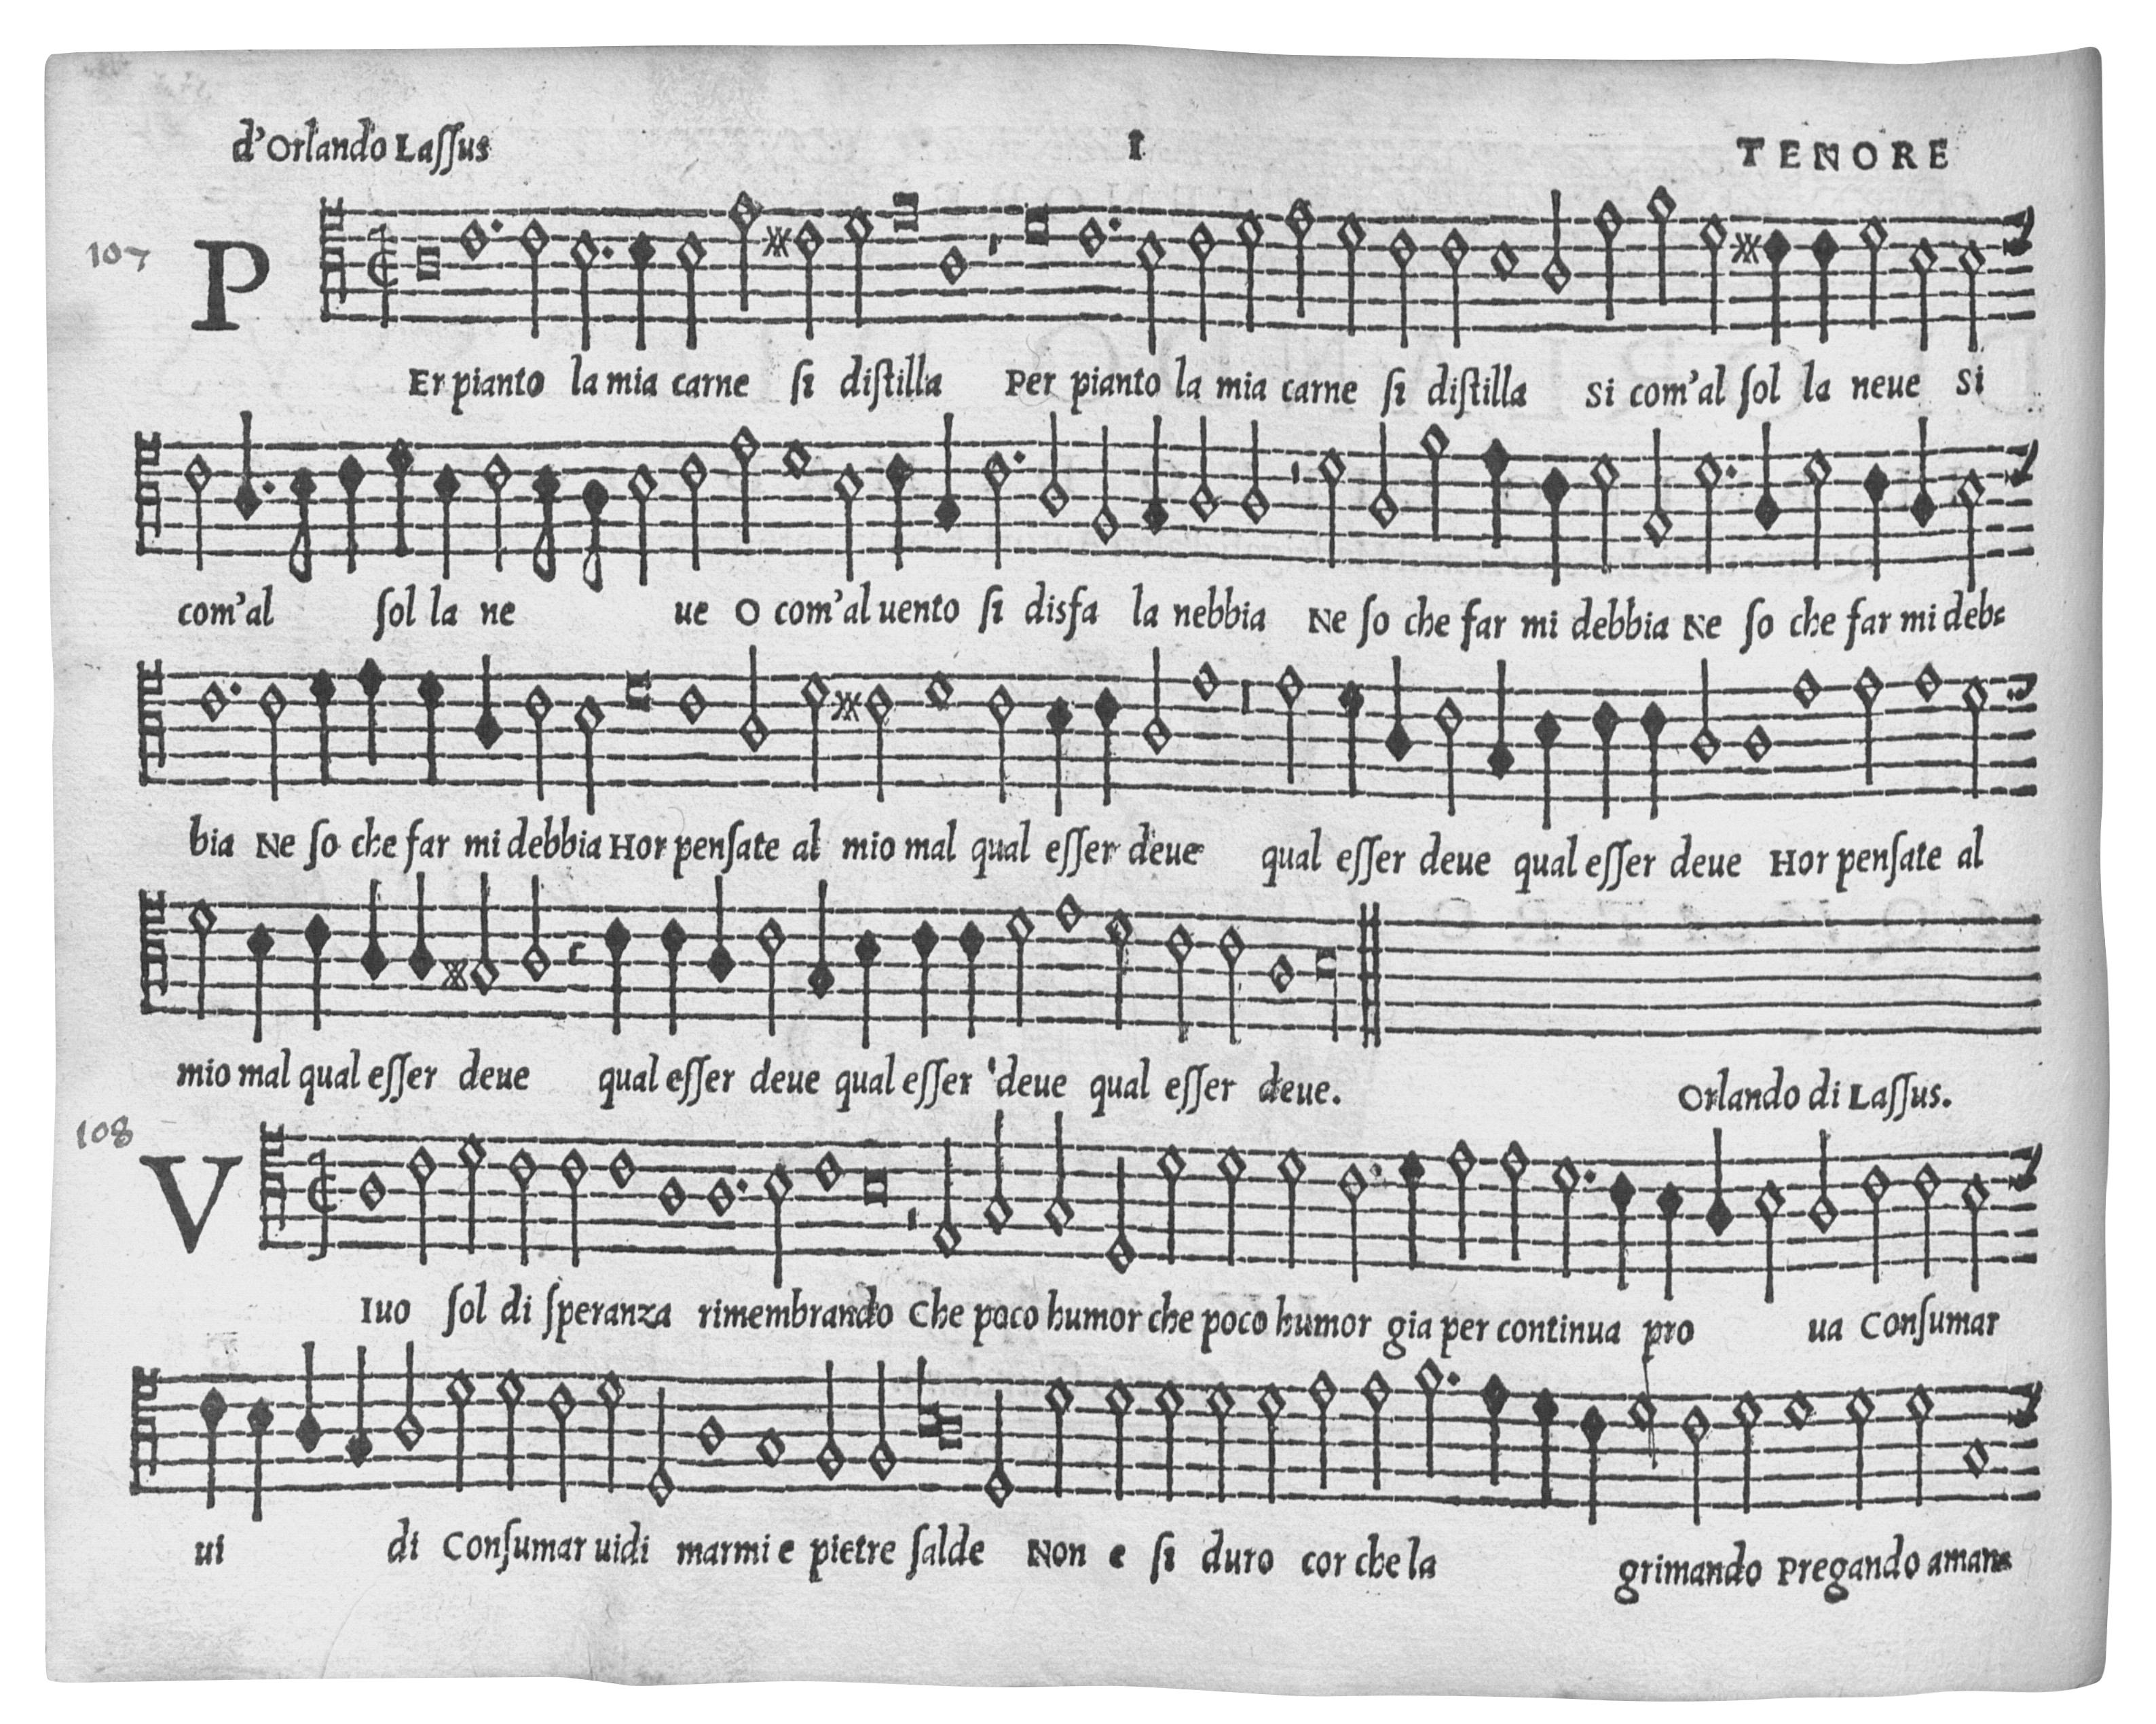 d'Orlando Laſſus I TENORE
107
P
Er pianto la mia carne ſi diſtilla Per pianto la mia carne ſi diſtilla Si com'al ſol la neue Si
com'al ſol la ne ue O com'al uento ſi disfa la nebbia Ne ſo che far mi debbia Ne ſo che far mi deb-
bia Ne ſo che far mi debbia Hor penſate al mio mal qual eſſer deue qual eſſer deue qual eſſer deue Hor penſate al
mio mal qual eſſer deue qual eſſer deue qual eſſer deue qual eſſer deue.
Orlando di Laſſus.
108
V
Iuo ſol di ſperanza rimembrando Che poco humor che poco humor gia per continua pro ua Conſumar
ui di Conſumar uidi marmi e pietre ſalde Non e ſi duro cor che la grimando Pregando aman-